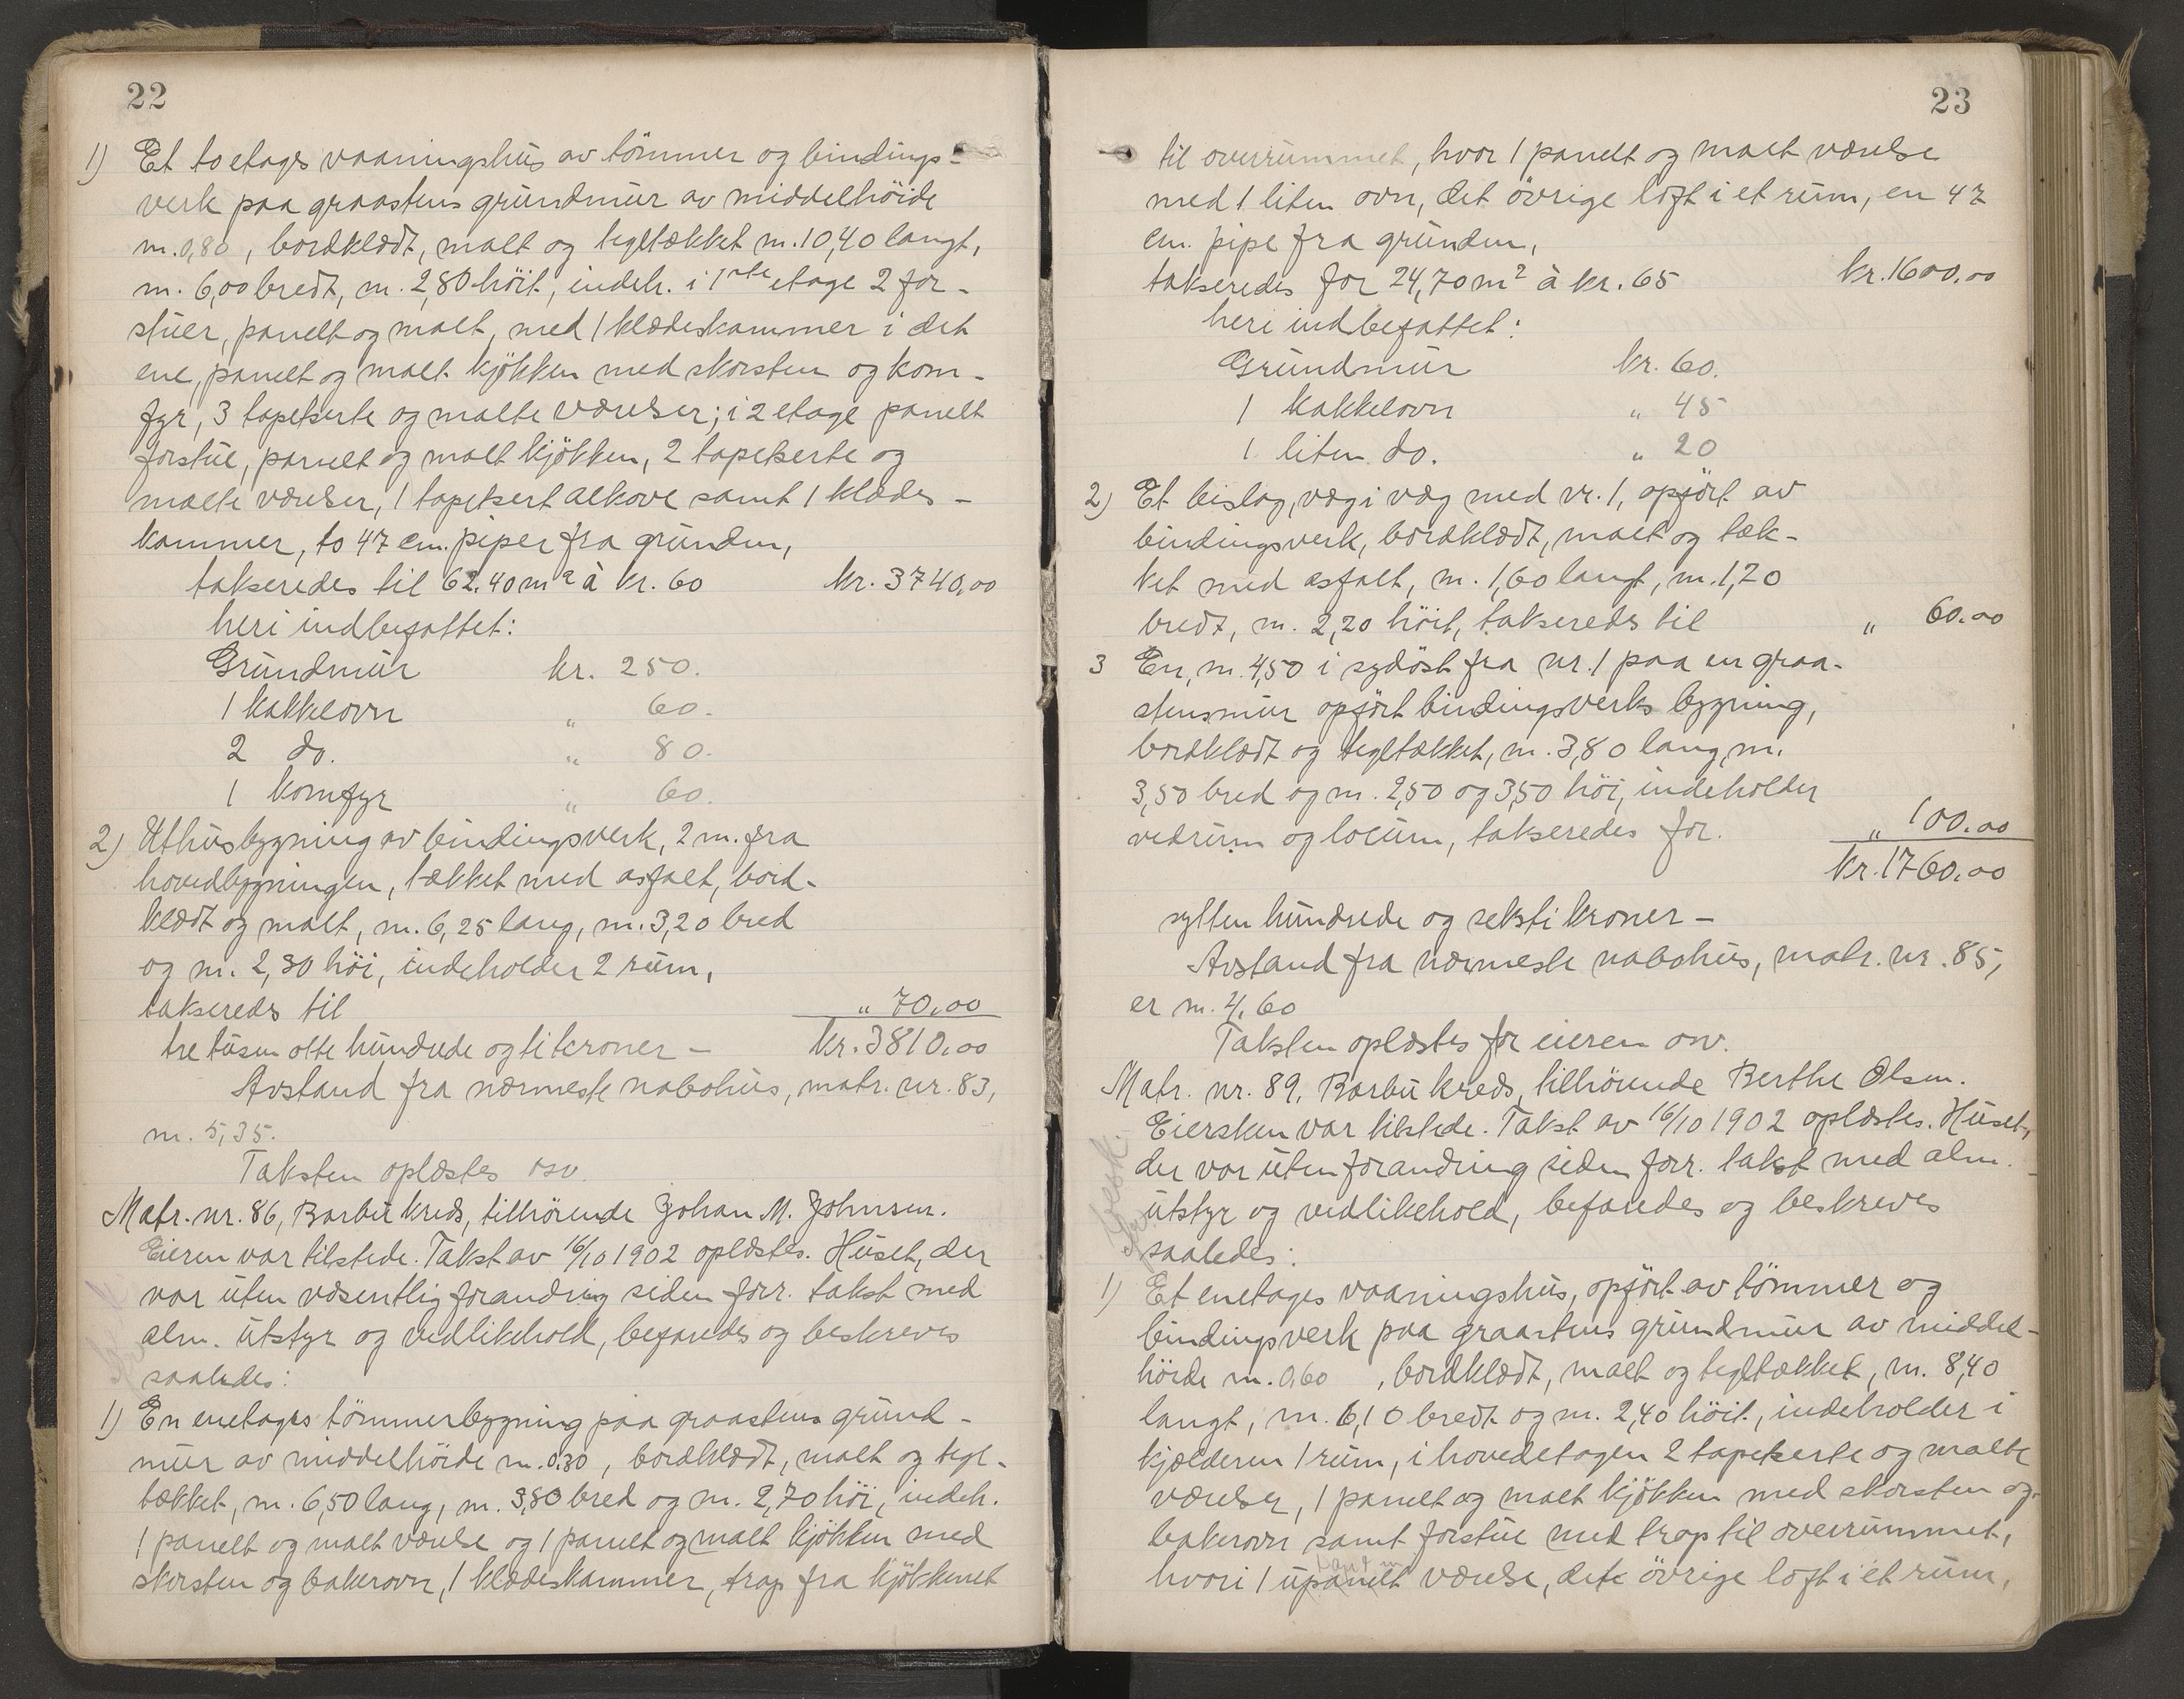 22
1) Et to etages vaaningshus av tömmer og bindings-
verk paa graastens grundmur av middelhöide
m. 0,80, bordklædt, malt og tegltækket m. 10,40 langt,
m. 6,00 bredt, m. 2,80 höit, indeh. i 1ste etage 2 for-
stuer, panelt og malt, med 1 klædeskammer i det
ene, panelt og malt kjökken med skorsten og kom-
fyr, 3 tapetserte og malte værelser; i 2 etage panelt
forstue, panelt og malt kjökken, 2 tapetserte og
malte værelser, 1 tapetsert alkove samt 1 klædes-
kammer, to 47 cm. piper fra grunden,
takseredes til 62.40 m2 à kr. 60 kr. 3740,00
heri indbefattet:
Grundmur kr. 250.
1 kakkelovn " 60.
2 do. " 80.
1 komfyr " 60.
2) Uthusbygning av bindingsverk, 2 m. fra
hovedbygningen, tækket med asfalt, bord-
klædt og malt, m. 6,25 lang, m. 3,20 bred
og m. 2,30 höi, indeholder 2 rum,
takseredes til " 70,00
tre tusen otte hundrede og ti kroner - kr. 3810,00
Avstand fra nærmeste nabohus, matr. nr. 83,
m. 5,35.
Taksten oplæstes osv.
Matr. nr. 86, Barbu kreds, tilhörende Johan M. Johnsen.
Eieren var tilstede. Takst av 16/10 1902 oplæstes. Huset, der
var uten væsentlig forandring siden forr. takst med
alm. utstyr og vedlikehold, befaredes og beskreves
saaledes:
1) En enetages tömmerbygning paa graastens grund-
mur av middelhöide m. 0.30, bordklædt, malt og tegl-
tækket, m. 6,50 lang, m. 3,80 bred og m. 2,70 höi, indeh.
1 panelt og malt værelse og 1 panelt og malt kjökken med
skorsten og bakerovn, 1 klædeskammer, trap fra kjökkenet
23
til overrummet, hvor 1 panelt og malt værelse
med 1 liten ovn, det övrige loft i et rum, en 47
cm. pipe fra grunden,
takseredes for 24,70 m2 à kr. 65 kr. 1600,00
heri indbefattet:
Grundmur kr. 60.
1 kakkelovn " 45
1 liten do. " 20
2) Et bislag, væg i væg med nr. 1, opfört av
bindingsverk, bordklædt, malt og tæk-
ket med asfalt, m. 1,60 langt, m. 1,20
bredt, m. 2,20 höit, takseredes til " 60.00
3 En, m. 4,50 i sydöst fra nr. 1 paa en graa-
stensmur opfört bindingsverks bygning,
bordklædt og tegltækket, m. 3,80 lang, m.
3,50 bred og m. 2,50 og 3,50 höi, indeholder
vedrum og locum, takseredes for. " 100.00
kr. 1760.00
sytten hundrede og seksti kroner -
Avstand fra nærmeste nabohus, matr. nr. 85,
er m. 4,60
Taksten oplæstes for eieren osv.
Matr. nr. 89, Barbu kreds, tilhörende Berthe Olsen.
Eiersken var tilstede. Takst av 16/10 1902 oplæstes. Huset,
der var uten forandring siden forr. takst med alm.
utstyr og vedlikehold, befaredes og beskreves
saaledes:
1) Et enetages vaaningshus, opfört av tömmer og
bindingsverk paa graastens grundmur av middel-
höide m. 0,60, bordklædt, malt og tegltækket, m. 8,40
langt, m. 6,10 bredt og m. 2,40 höit, indeholder i
kjælderen 1 rum, i hovedetagen 2 tapetserte og malte
værelser, 1 panelt og malt kjökken med skorsten og
bakerovn samt forstue med trap til overrummet,
hvori 1 upanelt værelse, dete övrige loft i et rum,